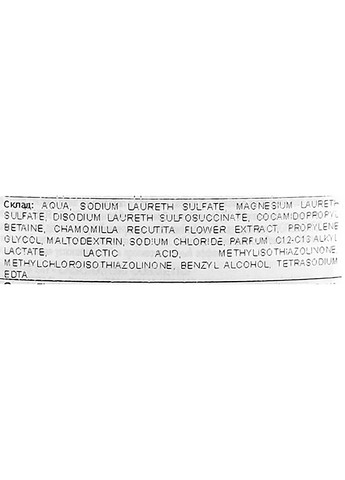 Склад: AQUA, SODIUM LAURETH SULFATE, MAGNESIUM LAURETH
SULFATE, DISODIUM LAURETH SULFOSUCCINATE, COCAMIDOPROPYL
BETAINE, CHAMOMILLA RECUTITA FLOWER EXTRACT, PROPYLENE
GLYCOL, MALTODEXTRIN, SODIUM CHLORIDE, PARFUM, C12-C13 ALKYL
LACTATE, LACTIC ACID, METHYLISOTHIAZOLINONE,
METHYLCHLOROISOTHIAZOLINONE, BENZYL ALCOHOL, TETRASODIUM
EDTA